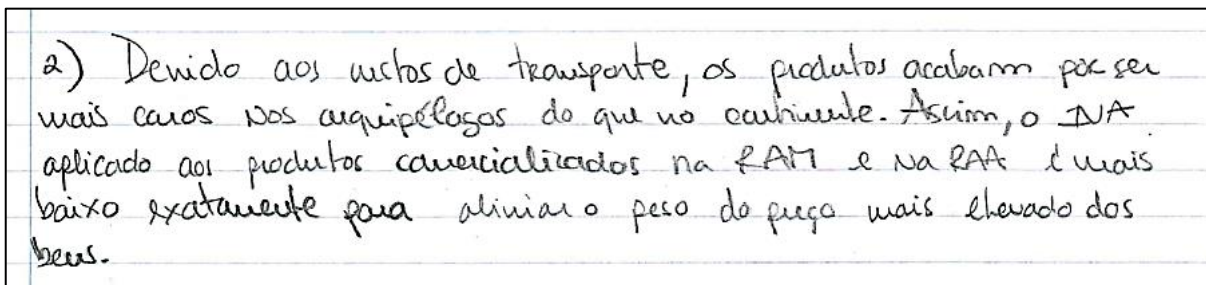 2) Devido aos custos de transporte, os produtos acabam por ser
mais caros nos arquipélagos do que no continente. Assim, o IVA
aplicado aos produtos comercializados na RAM e na RAA é mais
baixo exatamente para aliviar o peso do preço mais elevado dos
bens.